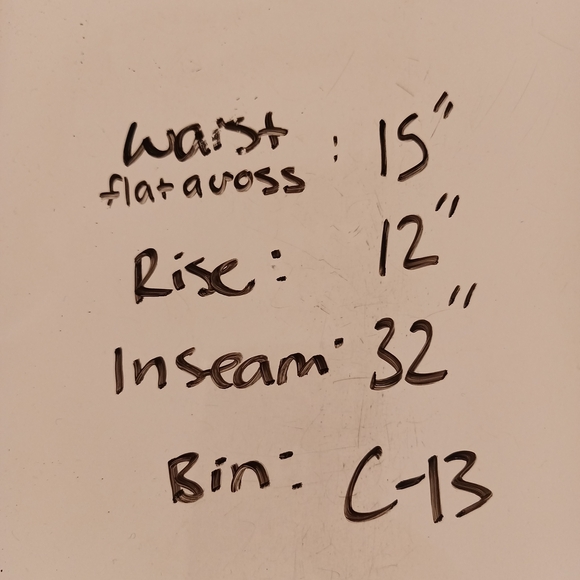 Waist : 15"
flat across
Rise: 12"
Inseam: 32"
Bin: C-13